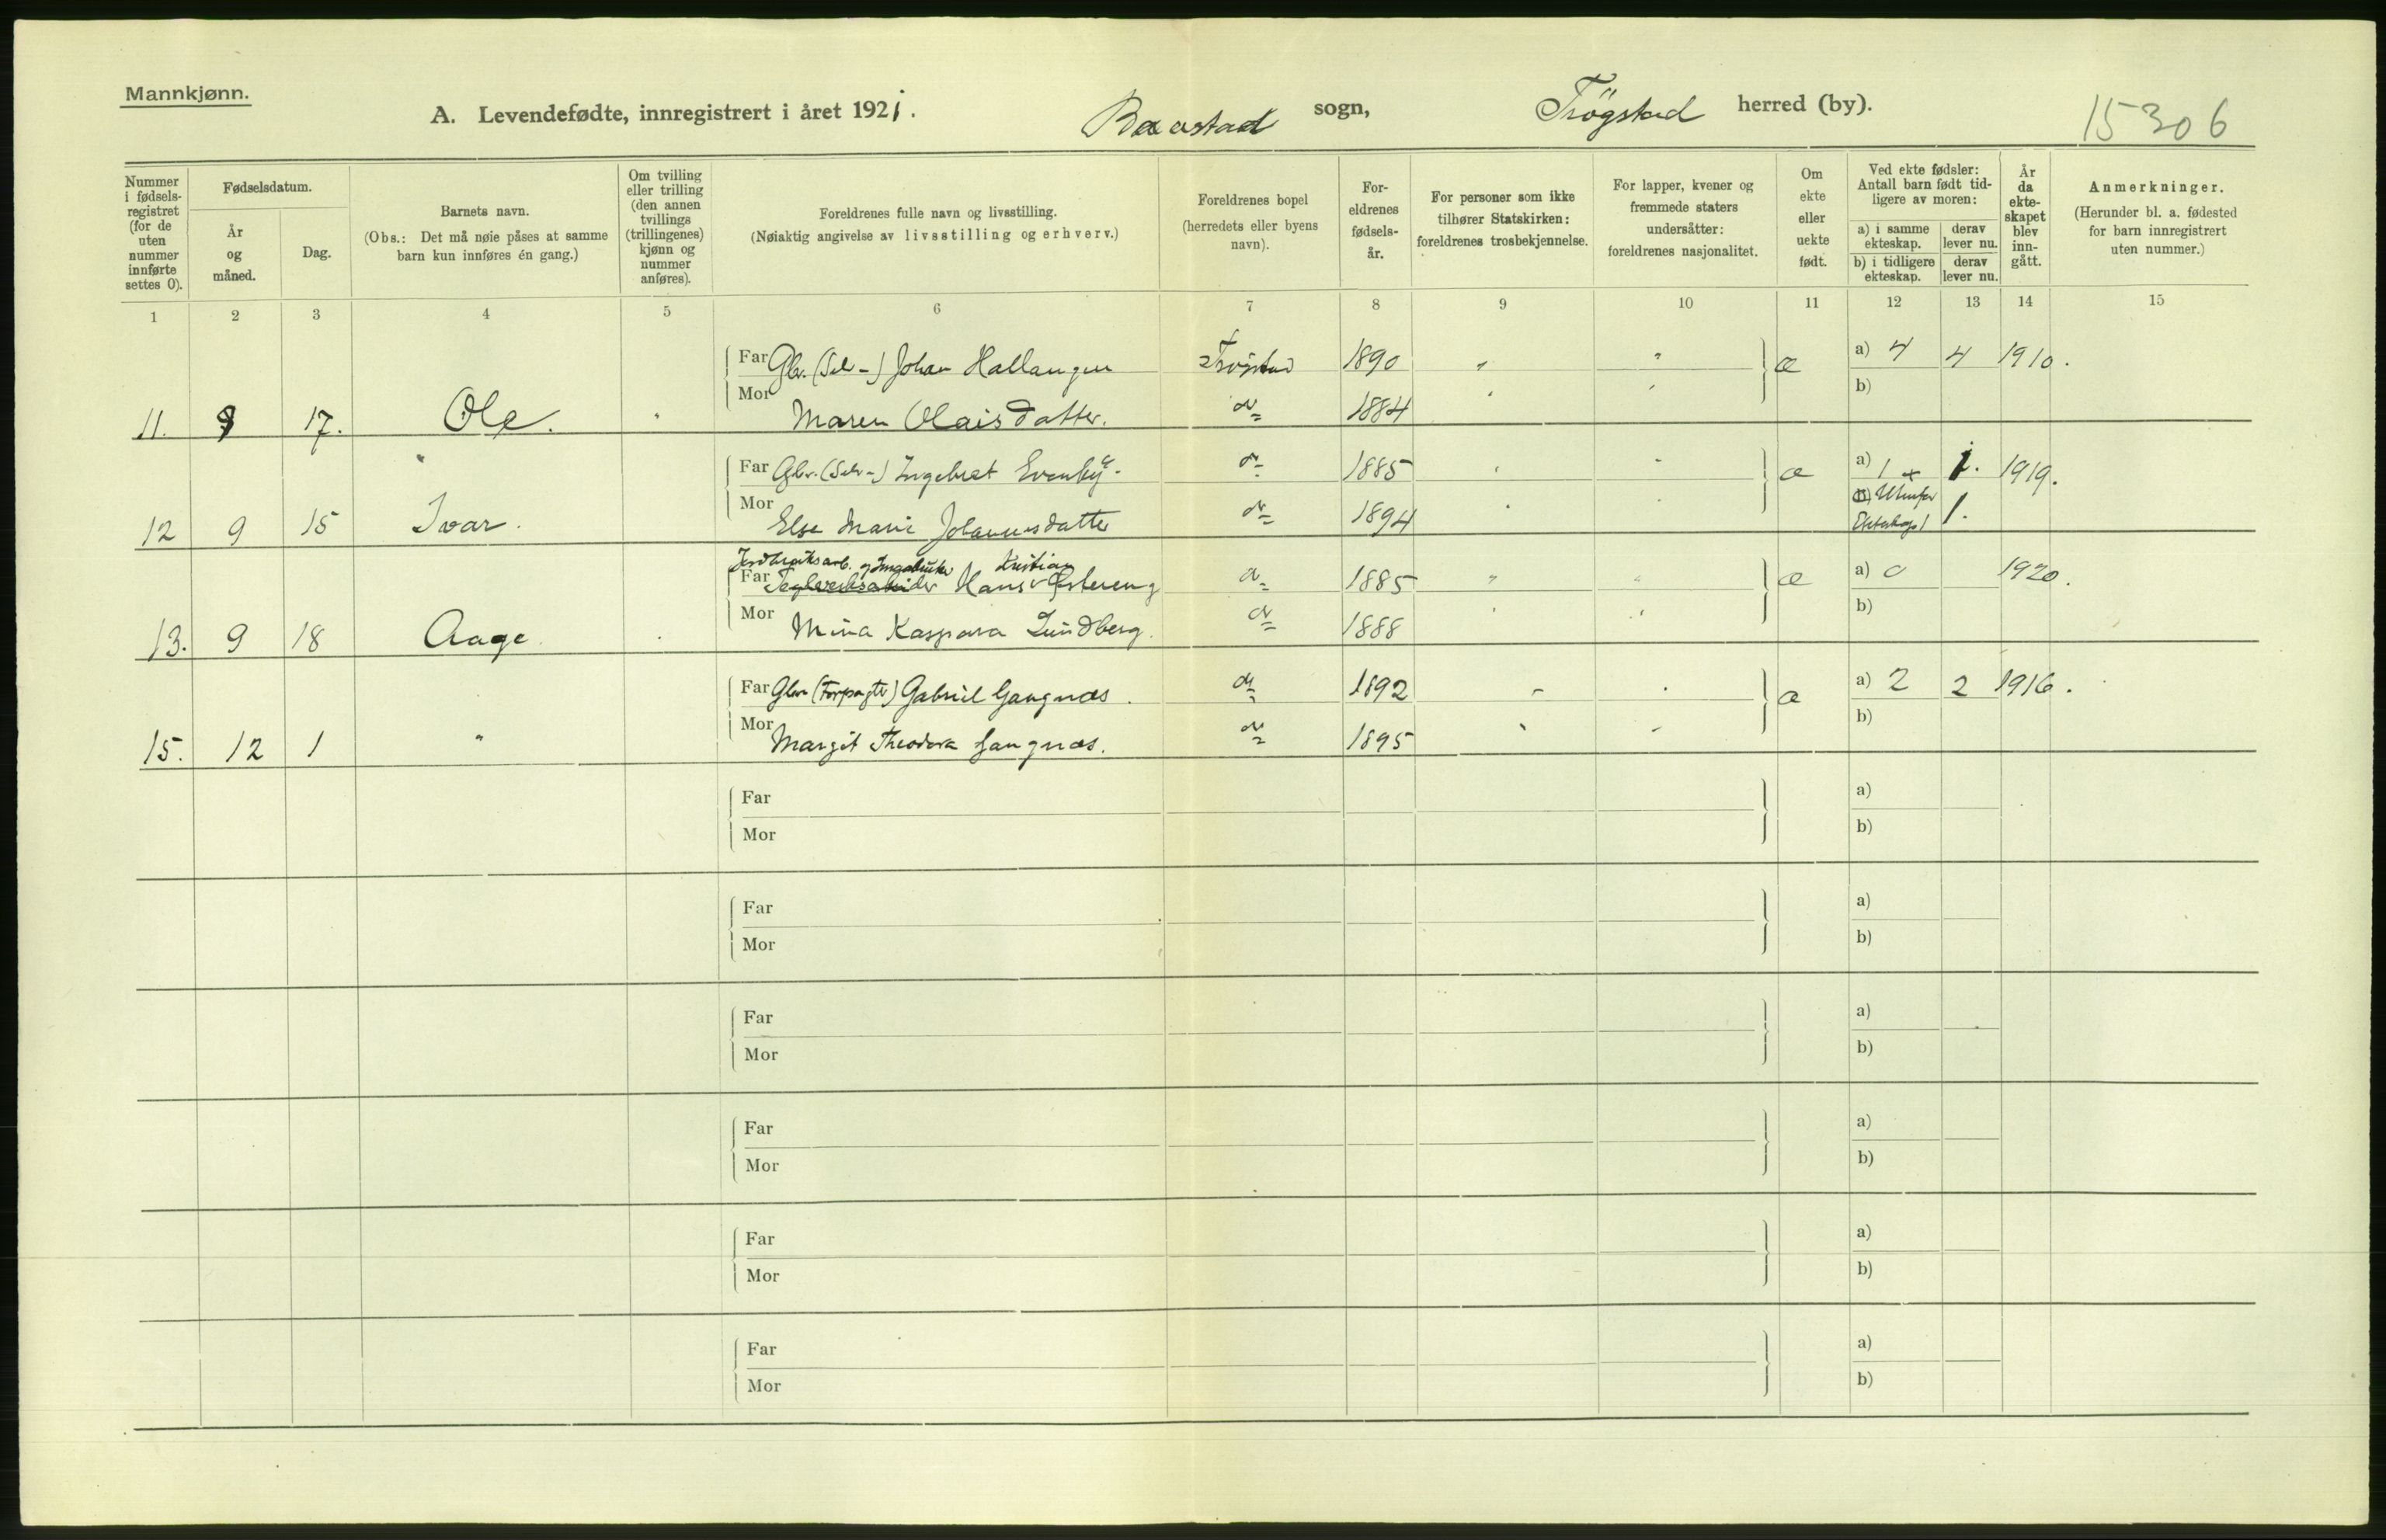 Mannkjønn.
A. Levendefødte, innregistrert i året 1921. Baastad sogn, Trögstad herred (by). 15306
Nummer i fødsels-registret (for de uten nummer innførte settes 0).
Fødselsdatum.
År og måned.
Dag.
Barnets navn.
(Obs.: Det må nøie påses at samme barn kun innføres én gang.)
Om tvilling eller trilling (den annen tvillings (trillingenes) kjønn og nummer anføres).
Foreldrenes fulle navn og livsstilling.
(Nøiaktig angivelse av livsstilling og erhverv.)
Foreldrenes bopel
(herredets eller byens navn).
For-eldrenes fødsels-år.
For personer som ikke tilhører Statskirken: foreldrenes trosbekjennelse.
For lapper, kvener og fremmede staters undersåtter: foreldrenes nasjonalitet.
Om ekte eller uekte født.
Ved ekte fødsler: Antall barn født tid-ligere av moren:
a) i samme ekteskap. derav lever nu.
b) i tidligere ekteskap. derav lever nu.
År da ekte-skapet blev inn-gått.
Anmerkninger.
(Herunder bl. a. fødested for barn innregistrert uten nummer.)
1 2 3 4 5 6 7 8 9 10 11 12 13 14 15
Far Gbr. (Selv-) Johan Hallangen Trögstad 1890 " " æ a) 4 4 1910.
11. 17. Ole. Mor Maren Olaisdatter. do 1884 " " b)
Far Gbr. (Selv-) Ingebret Evenby do 1885 " " æ a) 1 1. 1919.
12 9 15 Ivar. Mor Else Marie Johannesdatter do 1894 " " Utenfor Ekteskap 1 1.
Kristian
Far Teglverksarbeider Hans Østereng do 1885 " " æ a) 0 1920.
13. 9 18 Aage. Mor Mina Kaspara Lundberg. do 1888 " " b)
Far Gbr (Forpagter) Gabriel Gangnæs. do 1892 " " æ a) 2 2 1916.
15. 12 1 " Mor Margit Theodora Gangnæs. do 1895 " " b)
Far a)
Mor b)
Far a)
Mor b)
Far a)
Mor b)
Far a)
Mor b)
Far a)
Mor b)
Far a)
Mor b)